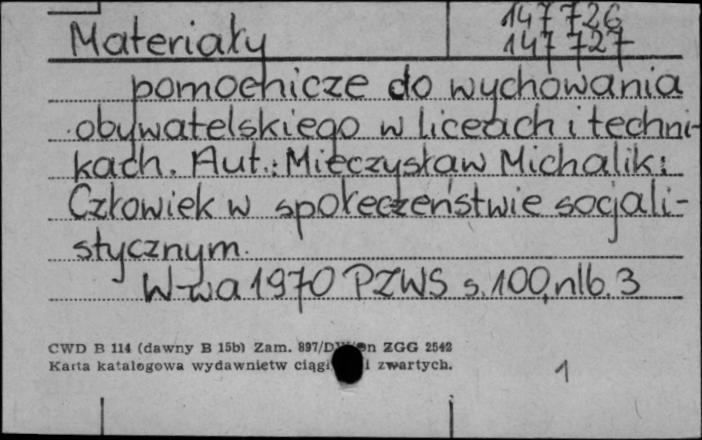 147 726
Materiały 147 727
pomocnicze do wychowania
obywatelskiego w liceach i techni-
kach. Aut.: Mieczysław Michalik:
Człowiek w społeczeństwie socjali-
stycznym.
W-wa 1970 PZWS s. 100, nlb. 3
CWD B 114 (dawny B 15b) Zam. ZGG 2542
Karta katalogowa wydawnictw i zwartych.
1